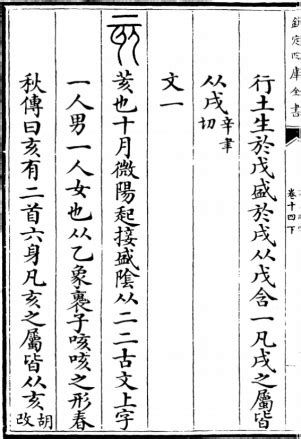 欽定四庫全書
卷十四下
行土生於戊盛於戌从戊含一凡戌之屬皆
从戌辛聿切
文一
亥荄也十月微陽起接盛陰从二二古文上字
一人男一人女也从乙象褱子咳咳之形春
秋傳曰亥有二首六身凡亥之屬皆从亥胡改